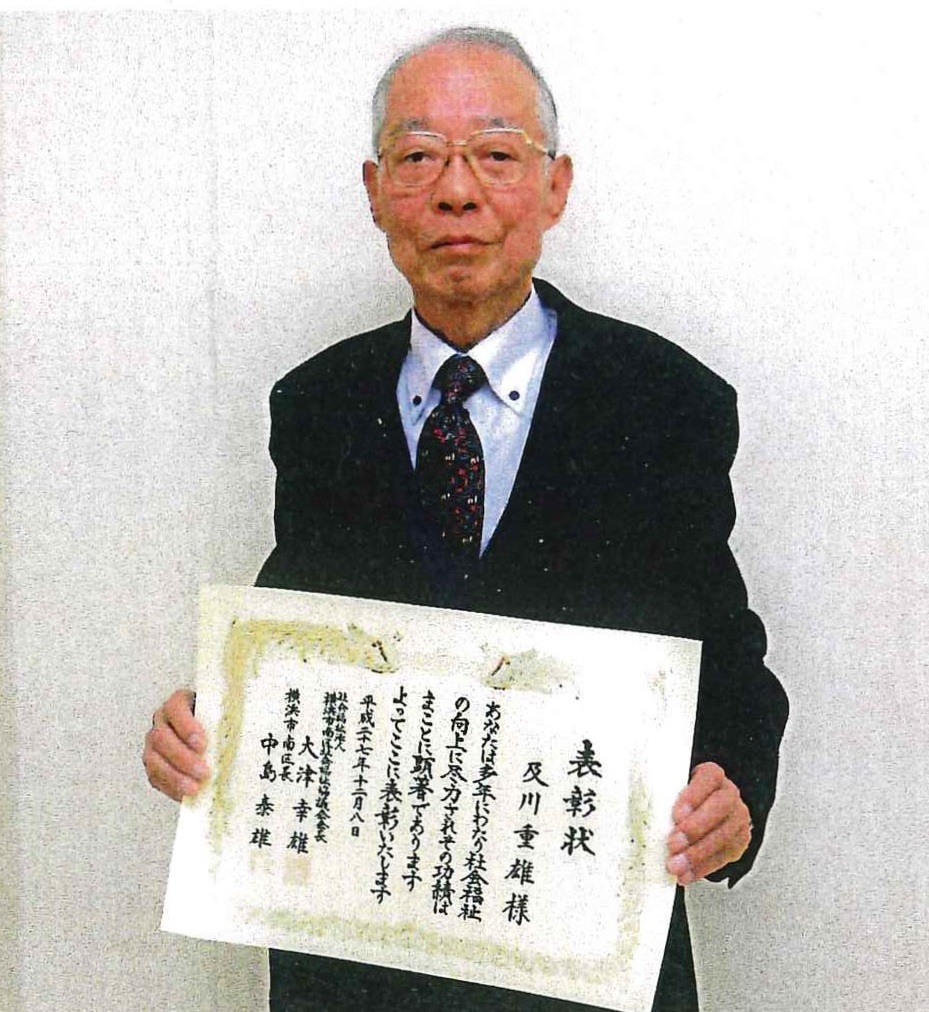 表彰状
及川重雄様
あなたは多年にわたり社会福祉
の向上に尽力されその功績は
まことに顕著であります
よってここに表彰いたします
平成二十七年十二月八日
社会福祉法人
横浜市南区社会福祉協議会会長
大津幸雄
横浜市南区長
中島泰雄